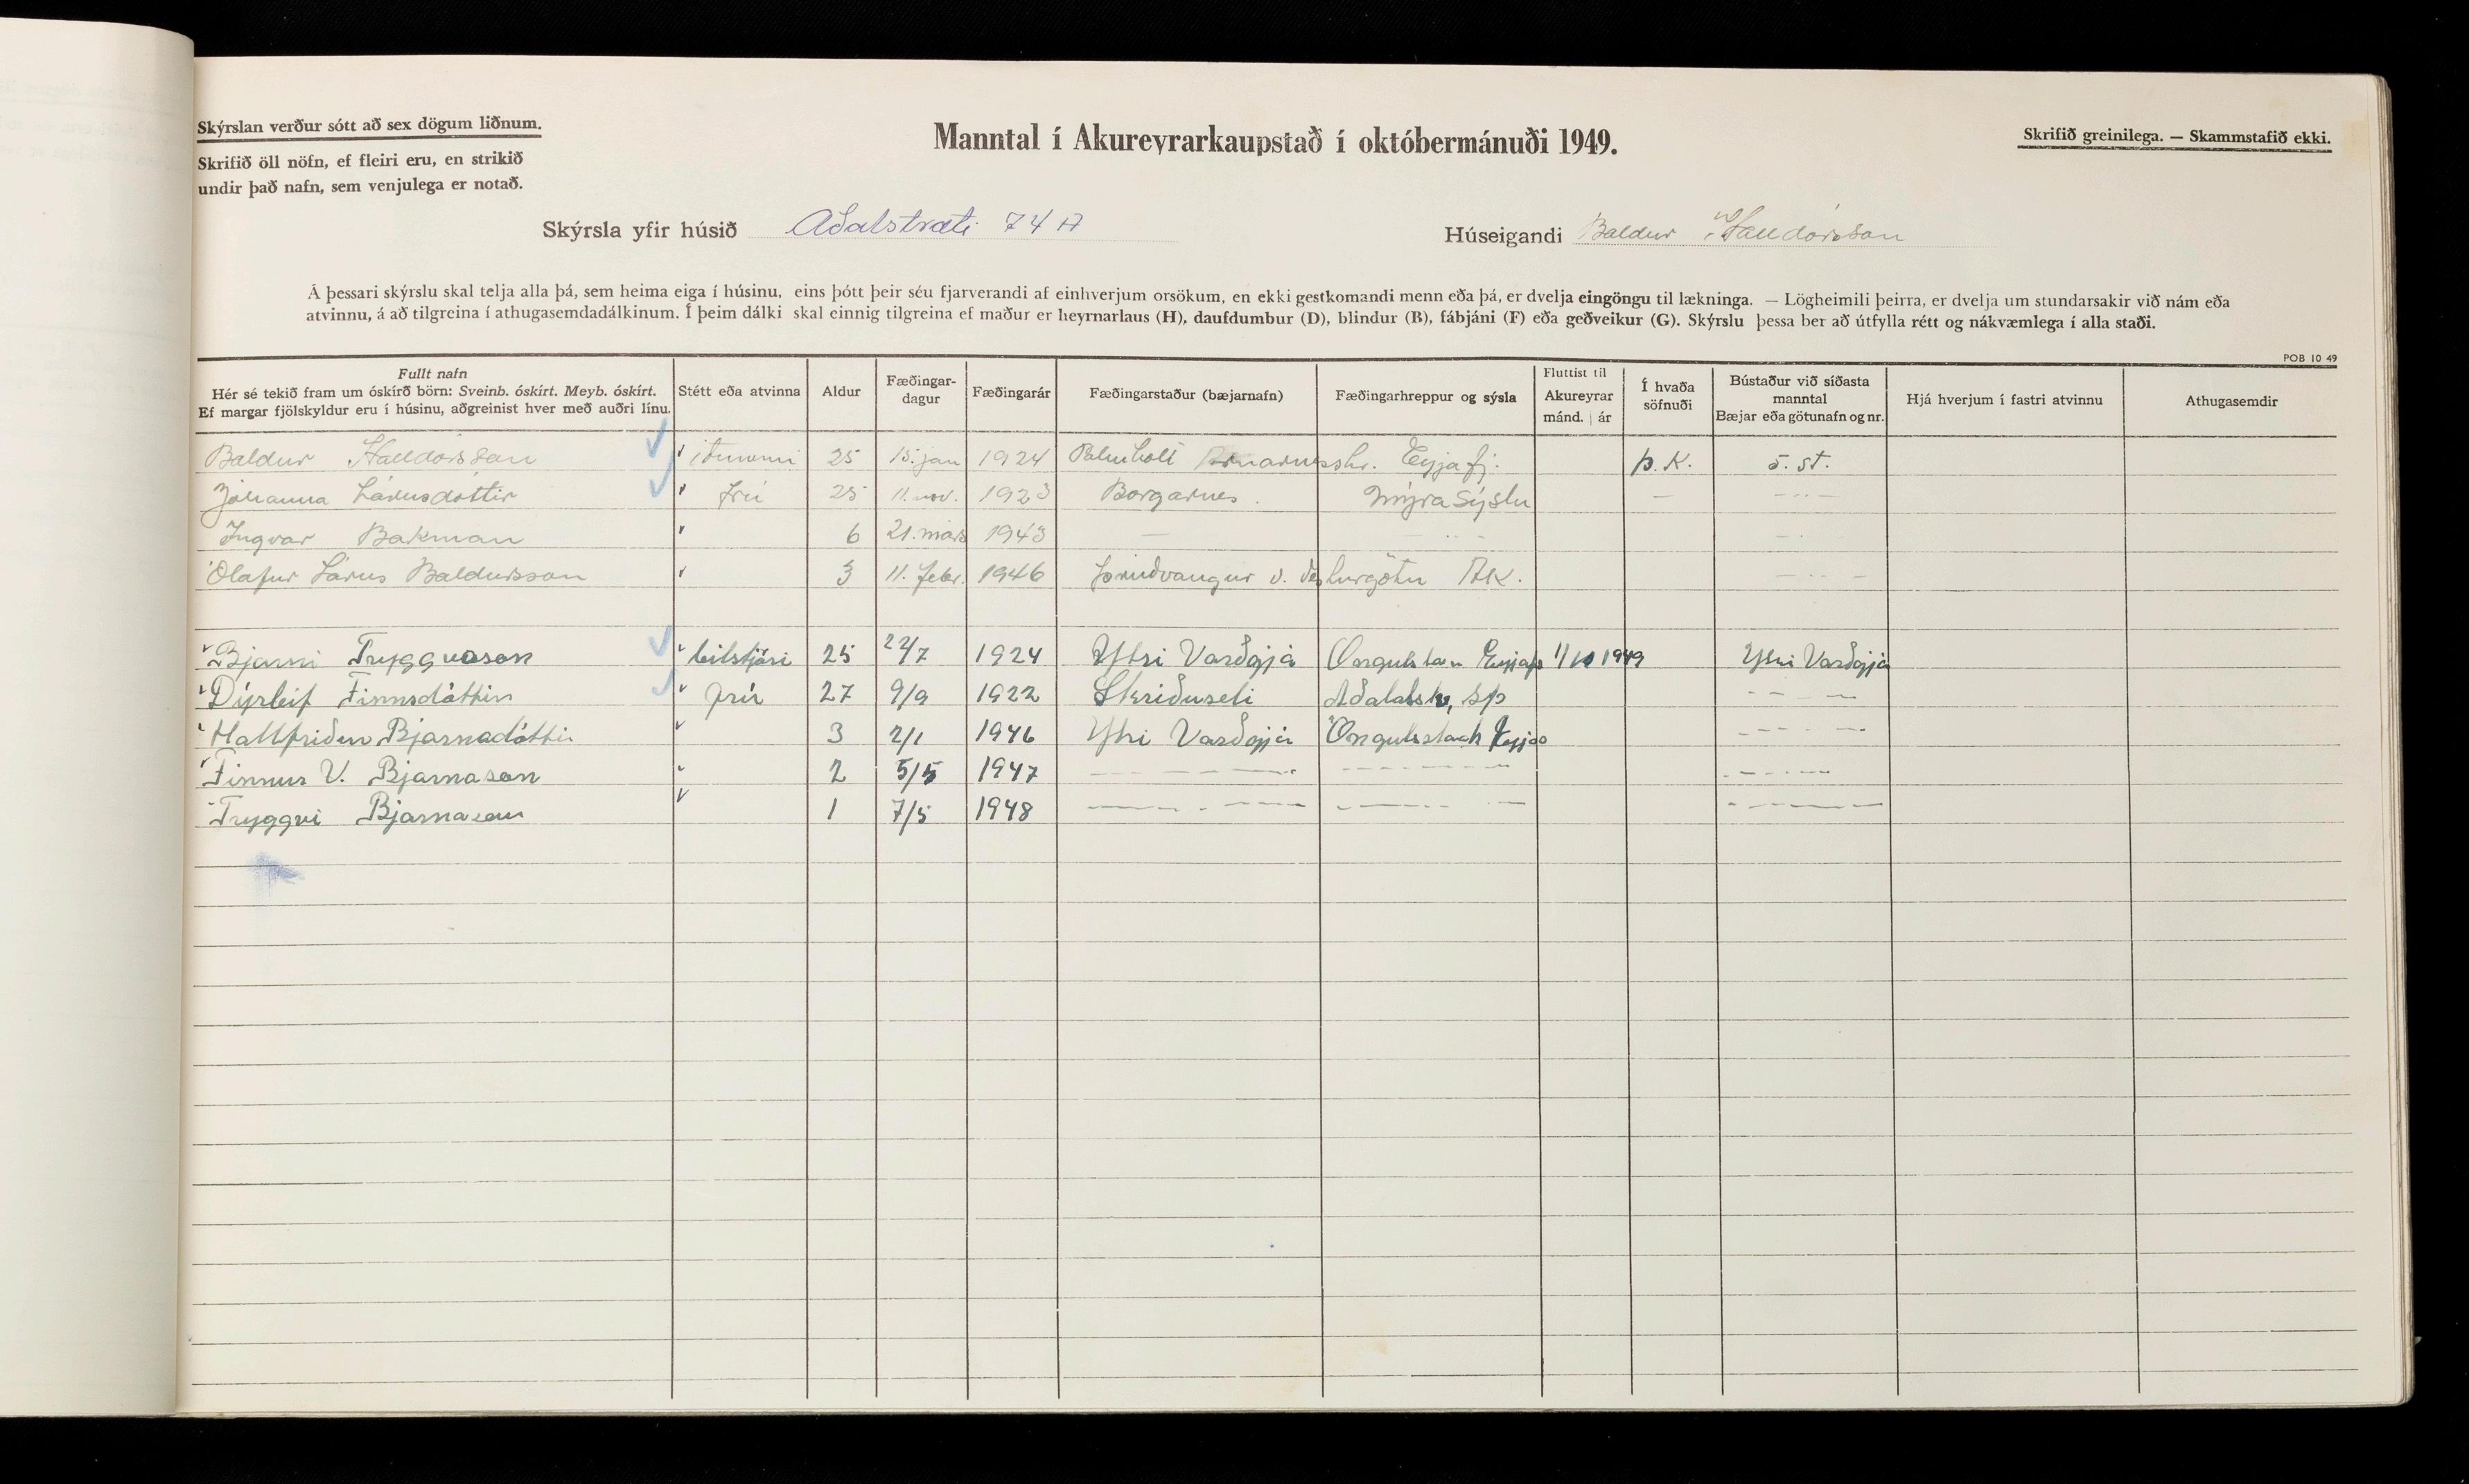 Skýrslan verður sótt að sex dögum liðnum.
Skrifið öll nöfn, ef fleiri eru, en strikið
undir það nafn, sem venjulega er notað.
Manntal í Akureyrarkaupstað í októbermánuði 1949.
Skrifið greinilega. — Skammstafið ekki.
Skýrsla yfir húsið Aðalstræti 74 A
Húseigandi Baldur Halldórsson
Á þessari skýrslu skal telja alla þá, sem heima eiga í húsinu, eins þótt þeir séu fjarverandi af einhverjum orsökum, en ekki gestkomandi menn eða þá, er dvelja eingöngu til lækninga. — Lögheimili þeirra, er dvelja um stundarsakir við nám eða
atvinnu, á að tilgreina í athugasemdadálkinum. Í þeim dálki skal einnig tilgreina ef maður er heyrnarlaus (H), daufdumbur (D), blindur (B), fábjáni (F) eða geðveikur (G). Skýrslu þessa ber að útfylla rétt og nákvæmlega í alla staði.
POB 10 49
Fullt nafn
Hér sé tekið fram um óskírð börn: Sveinb. óskírt. Meyb. óskírt.
Ef margar fjölskyldur eru í húsinu, aðgreinist hver með auðri línu.
Stétt eða atvinna
Aldur
Fæðingar-
dagur
Fæðingarár
Fæðingarstaður (bæjarnafn)
Fæðingarhreppur og sýsla
Fluttist til
Akureyrar
mánd. | ár
Í hvaða
söfnuði
Bústaður við síðasta
manntal
Bæjar eða götunafn og nr.
Hjá hverjum í fastri atvinnu
Athugasemdir
Baldur Halldórsson 25 15. jan 1924 Arnarnesshr. Eyjafj. Þ. K. s. st.
Jóhanna Lárusdóttir frú 25 11. nov. 1923 Borgarnes. Mýrasýslu — — ·· —
Ingvar Bakman 6 21. mars 1943 — — ·· — ·
Ólafur Lárus Baldursson 3 11. febr. 1946 Þrúðvangur v. AK. — ·· —
Bjarni Tryggvason bílstjóri 25 22/7 1924 Ytri Varðgjá 1/10 1949 Ytri Varðgjá
Dýrleif Finnsdóttir frú 27 9/9 1922 Skriðuseli Aðaldælahr, S.þ. - - - —
Hallfríður Bjarnadóttir 3 2/1 1946 Ytri Varðgjá - - - —
Finnur V. Bjarnason 2 5/5 1947 — - — - — — - — - — — - — - —
Tryggvi Bjarnason 1 7/5 1948 — - — - — — - — - — — - — - —